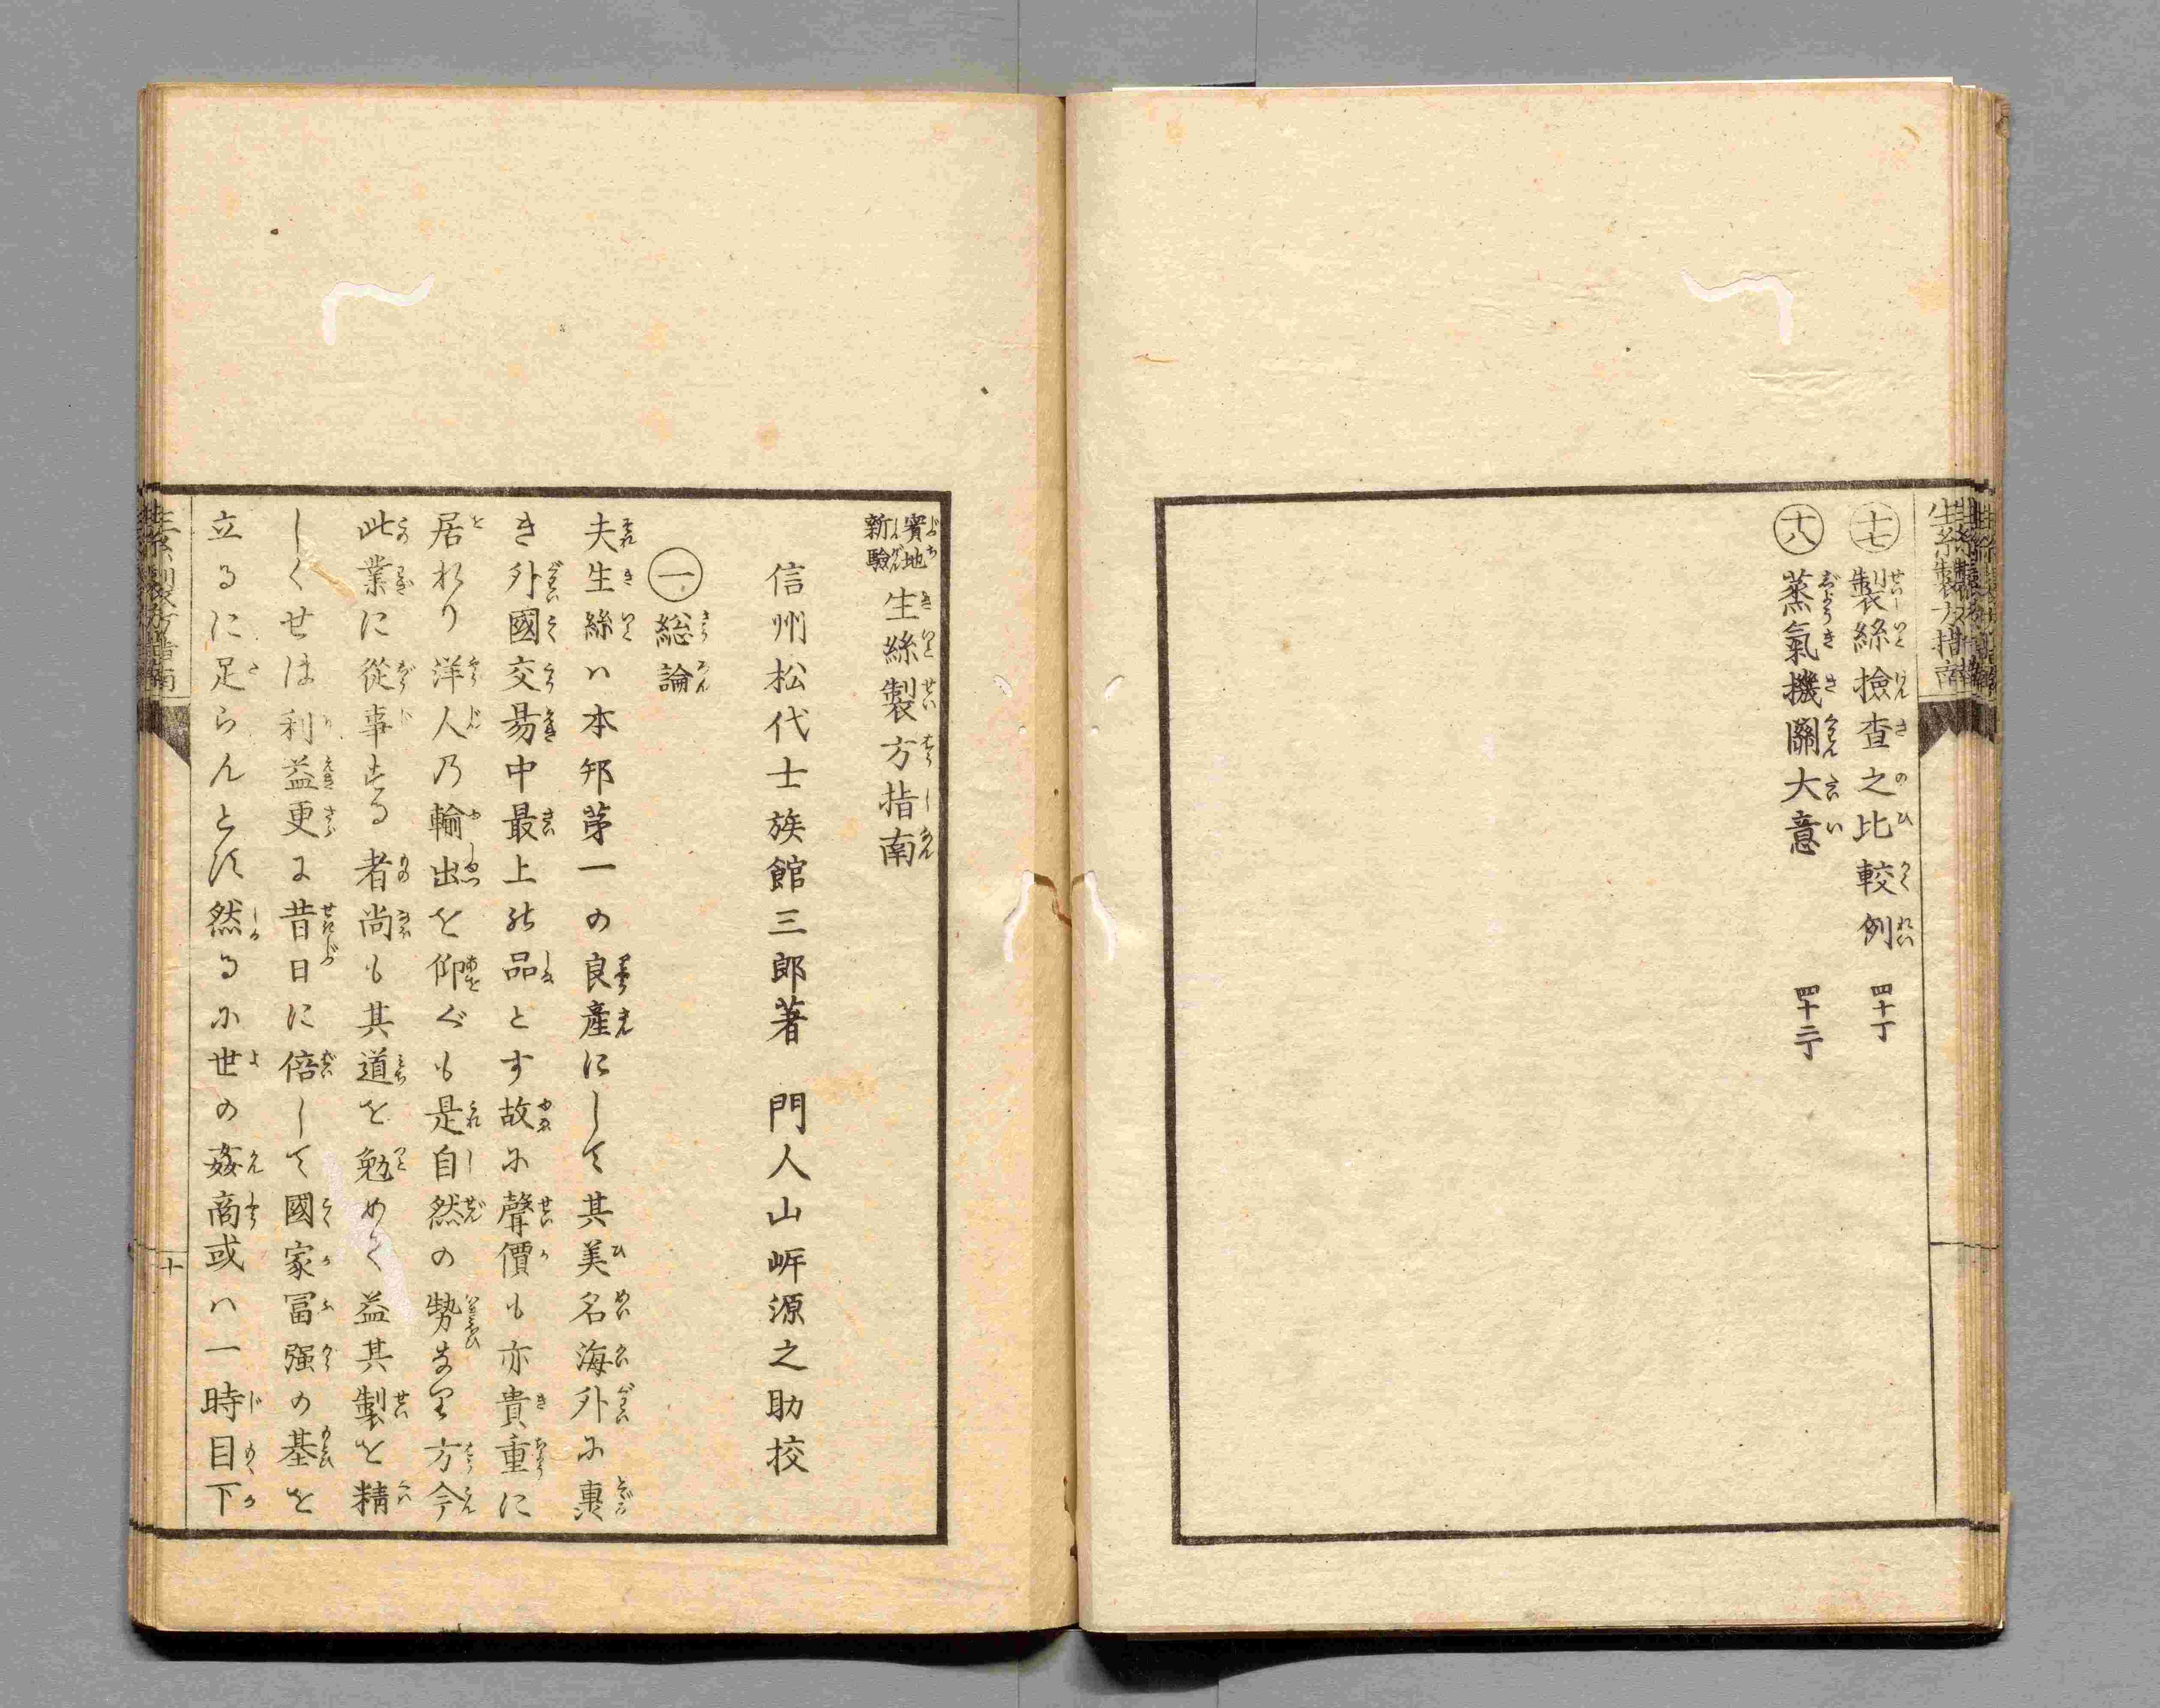 生糸製方指南
十七 製絲撿査之比較例 四十丁
十八 蒸氣機關大意 四十二丁
實地新驗 生絲製方指南
信州松代士族館三郎著 門人山𡵅源之助挍
一 総論
夫生絲ハ本邦苐一の良產にして其美名海外に轟
き外國交昜中最上の品とす故に聲價も亦貴重に
居れり洋人乃輸出を仰ぐも是自然の勢なり方今
此業に從事する者尚も其道を勉めて益其製を精
しくせば利益更に昔日に倍して國家冨强の基を
立るに足らんとす然るに世の姦商或ハ一時目下
十